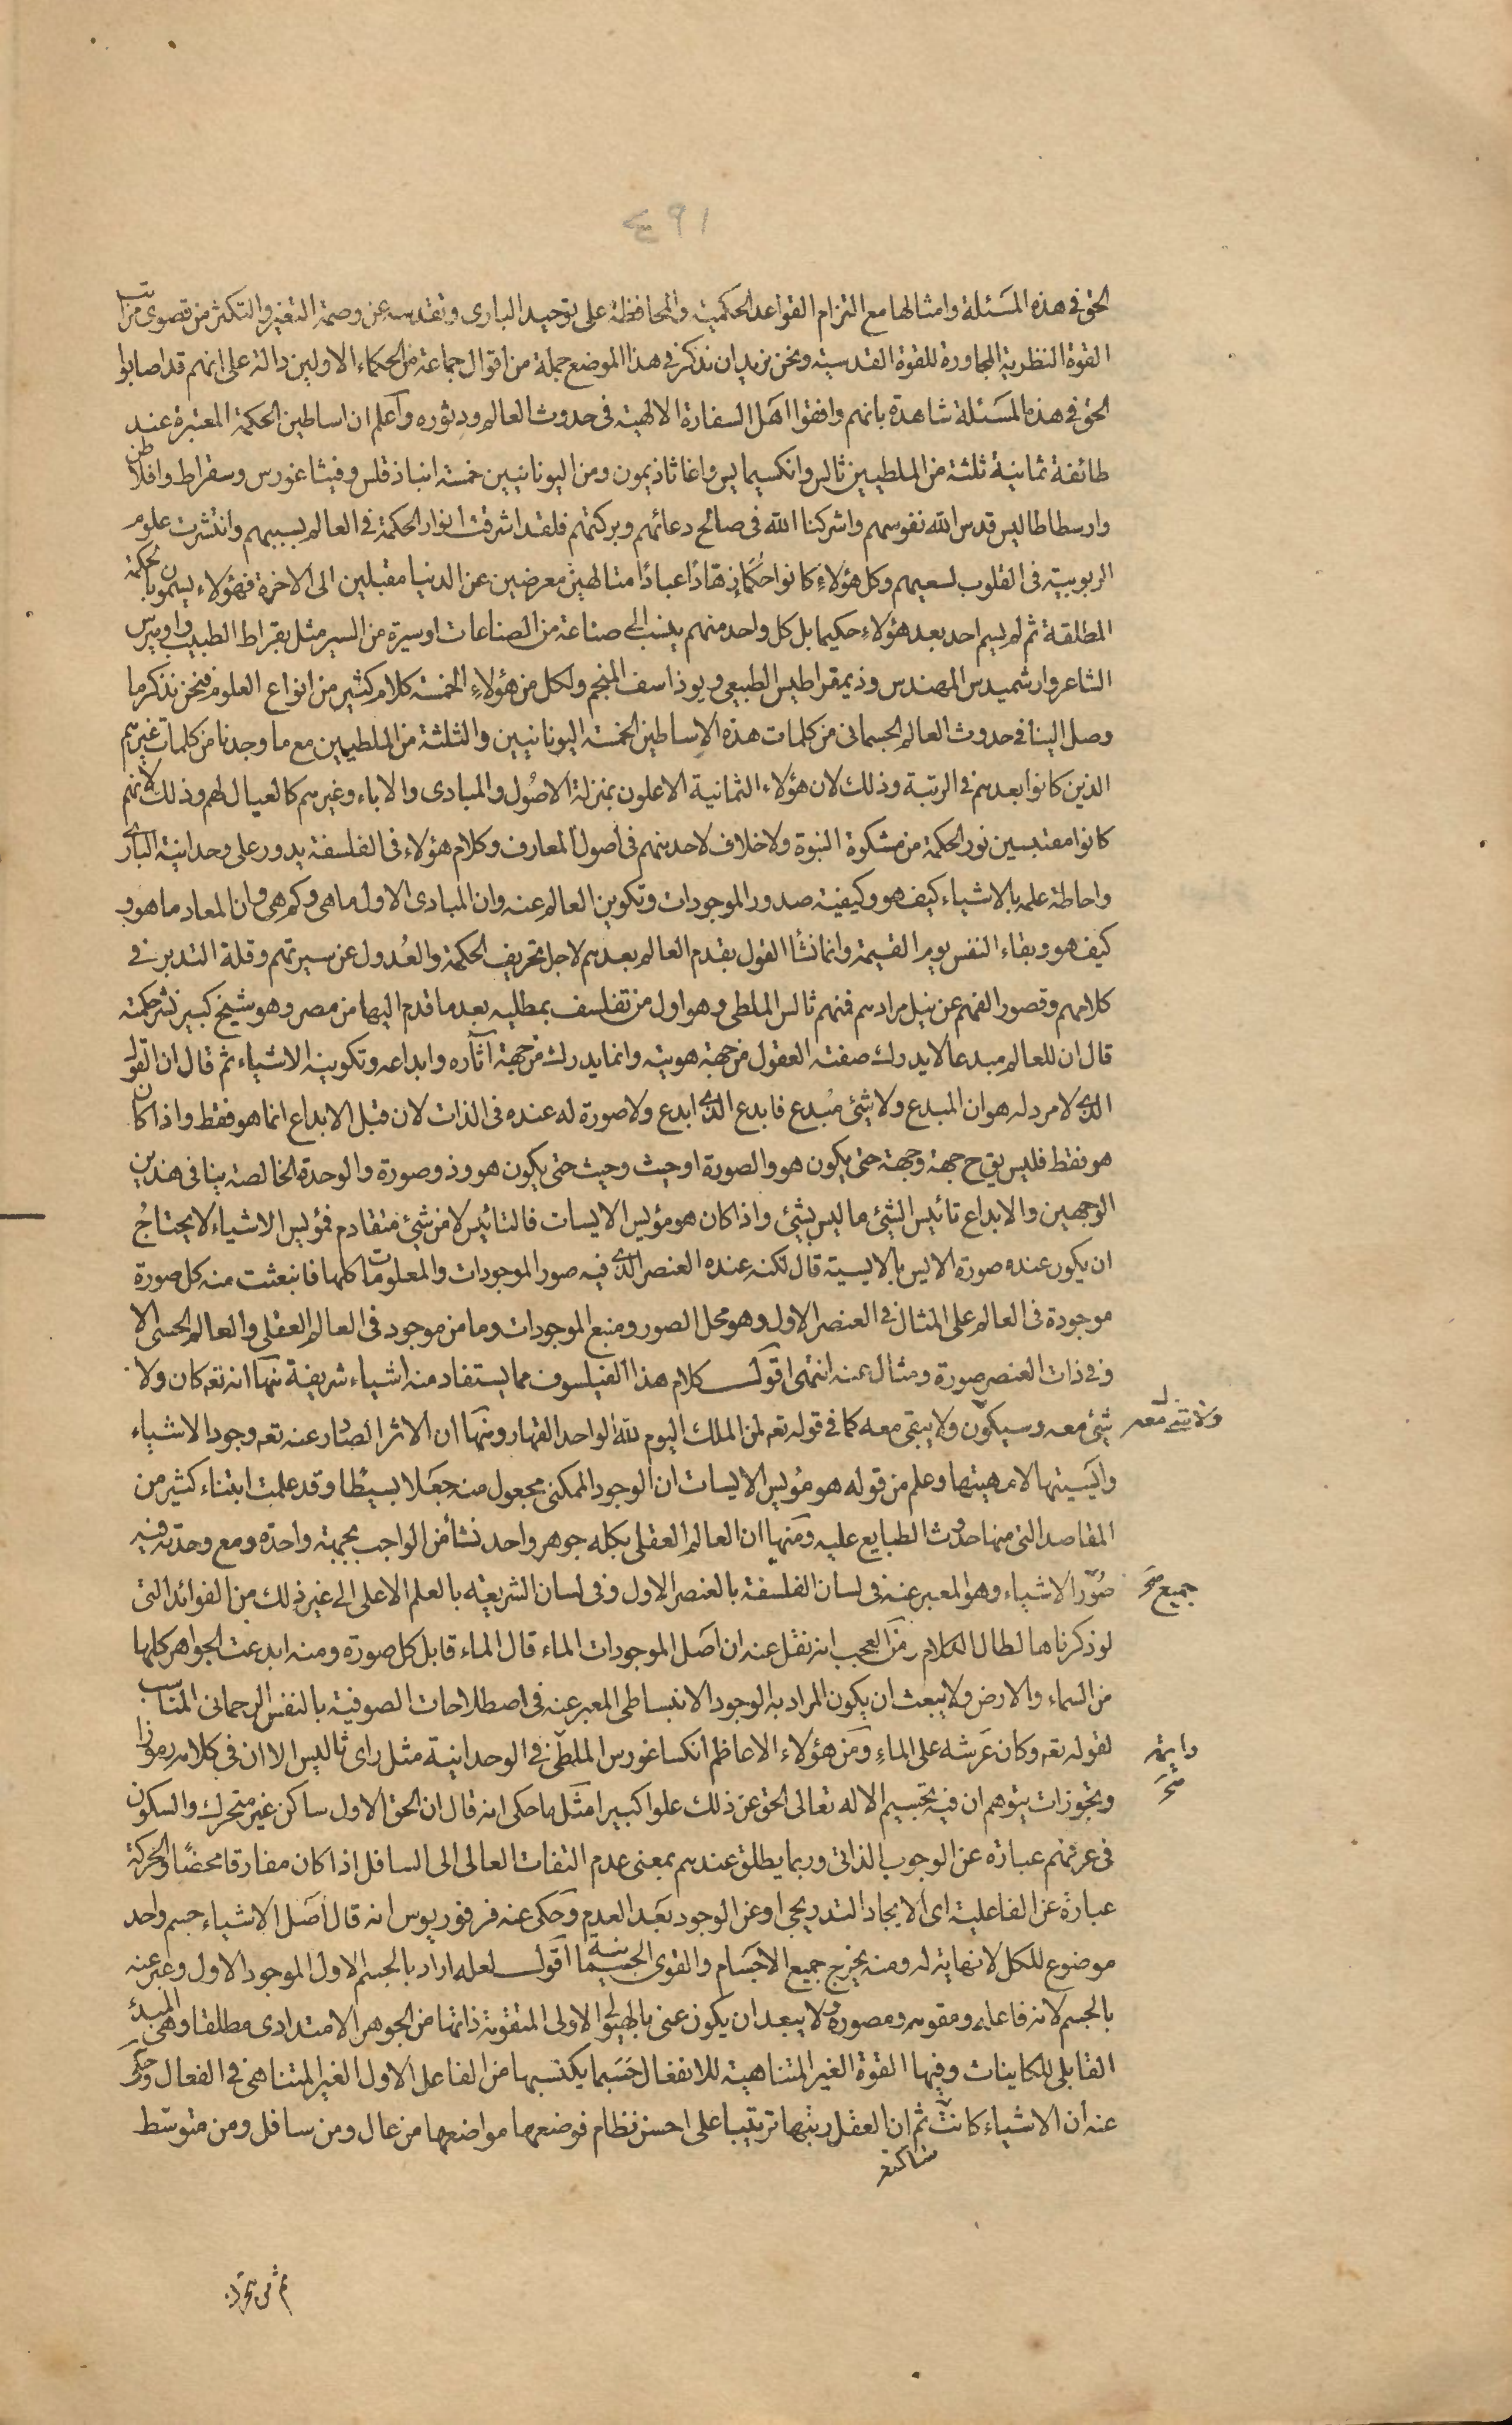 ٤٩١
الحق فى هذه المسئلة وامثالها مع التزام القواعد الحكمية والمحافظة على توحيد البارى وتقدسه عن وصمة التغير والتكثر من قصوى مراتب
القوة النظرية المجاورة للقوة القدسية ونحن نريد ان نذكر فى هذا الموضع جملة من اقوال جماعة من الحكماء الاولين دالة على انهم قد اصابوا
الحق فى هذه المسئلة شاهدة بانهم وافقوا اهل السفارة الالهية فى حدوث العالم ودثوره واعلم ان اساطين الحكمة المعتبرة عند
طائفة ثمانية ثلثة من الملطيين ثالس وانكسيمايس واغاثاذيمون ومن اليونانيين خمسة انباذقلس وفيثاغورس وسقراط وافلاطن
وارسطاطاليس قدس الله نفوسهم واشركنا الله فى صالح دعائهم وبركتهم فلقد اشرقت انوار الحكمة فى العالم بسببهم وانتشرت علوم
الربوبية فى القلوب لسعيهم وكل هؤلاء كانوا حكماء زهّادًا عبادًا متالهين معرضين عن الدنيا مقبلين الى الاخرة فهؤلاء يسمون بالحكمة
المطلقة ثم لم يسم احد بعد هؤلاء حكيما بل كل واحد منهم ينسب الى صناعة من الصناعات او سيرة من السير مثل بقراط الطبيب واوميرس
الشاعر وارشميدس المهندس وذيمقراطيس الطبيعى ويوذاسف المنجم ولكل من هؤلاء الخمسة كلام كثير من انواع العلوم فنحن نذكر ما
وصل الينا فى حدوث العالم الجسمانى من كلمات هذه الاساطين الخمسة اليونانيين والثلثة من الملطيين مع ما وجدنا من كلمات غيرهم
الذين كانوا بعدهم فى الرتبة وذلك لان هؤلاء الثمانية الاعلون بمنزلة الاصُول والمبادى والاباء وغيرهم كالعيال لهم وذلك لانهم
كانوا مقتبسين نور الحكمة من مشكوة النبوة ولا خلاف لاحد منهم فى اصول المعارف وكلام هؤلاء فى الفلسفة يدور على وحدانية البارى
واحاطة علمه بالاشياء كيف هو وكيفية صدور الموجودات وتكوين العالم عنه وان المبادى الاول ما هى وكم هى وان المعاد ما هو و
كيف هو وبقاء النفس يوم القيمة وانما نشأ القول بقدم العالم بعدهم لاجل تحريف الحكمة والعُدول عن سيرتهم وقلة التدبر فى
كلامهم وقصور الفهم عن نيل مرادهم فمنهم ثالس الملطى وهو اول من تفلسف بملطيه بعد ما قدم اليها من مصر وهو شيخ كبير نشر حكمته
قال ان للعالم مبدعا لا يدرك صفته العقول من جهة هويته وانما يدرك من جهة آثاره وابداعه وتكوينه الاشياء ثم قال ان القول
الذى لا مرد له هو ان المبدع ولا شئ مُبدع فابدع الذى ابدع ولا صورة له عنده فى الذات لان قبل الابداع انما هو فقط واذا كان
هو فقط فليس يق ح جهة وجهة حتى يكون هو والصورة او حيث وحيث حتى يكون هو وذو صورة والوحدة الخالصة ينافى هذين
الوجهين والابداع تائيس الشئ ما ليس بشئ واذا كان هو مؤيس الايسات فالتائيس لا من شئ متقادم فمؤيس الاشياء لا يحتاجُ
ان يكون عنده صورة الايس بالايسية قال لكنه عنده العنصر الذى فيه صور الموجودات والمعلومات كلها فانبعثت منه كل صورة
موجودة فى العالم على المثال فى العنصر الاول وهو محل الصور ومنبع الموجودات وما من موجود فى العالم العقلى والعالم الحسى الا
وفى ذات العنصر صورة ومثال عنه انتهى اقول كلام هذا الفيلسوف مما يستفاد منه اشياء شريفة منها انه تعه كان ولا
شئ معه وسيكون ولا يبقى معه كما فى قوله تعه لمن الملك اليوم لله الواحد القهار ومنها ان الاثر الصادر عنه تعه وجود الاشياء
ولا شئ معه
وأيسيتها لا مهيتها وعلم من قوله هو مؤيس الايسات ان الوجود الممكنى مجعول منه جعلا بسيطا وقد علمت ابتناء كثير من
المقاصد التى منها حدوث الطبايع عليه ومنها ان العالم العقلى بكله جوهر واحد نشأ من الواجب بجهة واحدة ومع وحدته فيه
صُوَر الاشياء وهو المعبر عنه فى لسان الفلسفة بالعنصر الاول وفى لسان الشريعة بالعلم الاعلى الى غير ذلك من الفوائد التى
جميع صح
لو ذكرناها لطال الكلام ومن العجب انه نقل عنه ان اصل الموجودات الماء قال الماء قابل كل صورة ومنه ابدعت الجواهر كلها
من السماء والارض ولا يبعث ان يكون المراد به الوجود الانبساطى المعبر عنه فى اصطلاحات الصوفية بالنفس الرحمانى المناسب
لقوله تعه وكان عَرشه على الماءِ ومن هؤلاء الاعاظم انكساغورس الملطى فى الوحدانية مثل راى ثاليس الا ان فى كلامه رموزا
صح
وتجوزات يتوهم ان فيه تجسيم الاله تعالى الحق عن ذلك علوا كبيرا مثل ما حكى انه قال ان الحق الاول ساكن غير متحرك والسكون
فى عرفهم عبارة عن الوجوب الذاتى وربما يطلق عندهم بمعنى عدم التفات العالى الى السافل اذا كان مفارقا محضًا والحركة
عبارة عن الفاعلية اى الايجاد التدريجى او عن الوجود بعد العدم وحكى عنه فرفوريوس انه قال اصل الاشياء جسم واحد
موضوع للكل لا نهاية له ومنه يخرج جميع الاجسام والقوى الجسمانية اقول لعله اراد بالجسم الاول الموجود الاول وعبر عنه
بالجسم لانه فاعله ومقومه ومصوره ولا يبعد ان يكون عنى بالهيولى الاولى المتقومة ذاتها من الجوهر الامتدادى مطلقا وهى المبدئ
القابلى للكاينات وفيها القوة الغير المتناهية للانفعال حَسَبما يكتسبها من الفاعل الاول الغير المتناهى فى الفعال وحكى
عنه ان الاشياء كانت ثم ان العقل رتبها ترتيبا على احسن نظام فوضعها مواضعها من عال ومن سافل ومن متوسط
ساكنة
ثم من متحرك